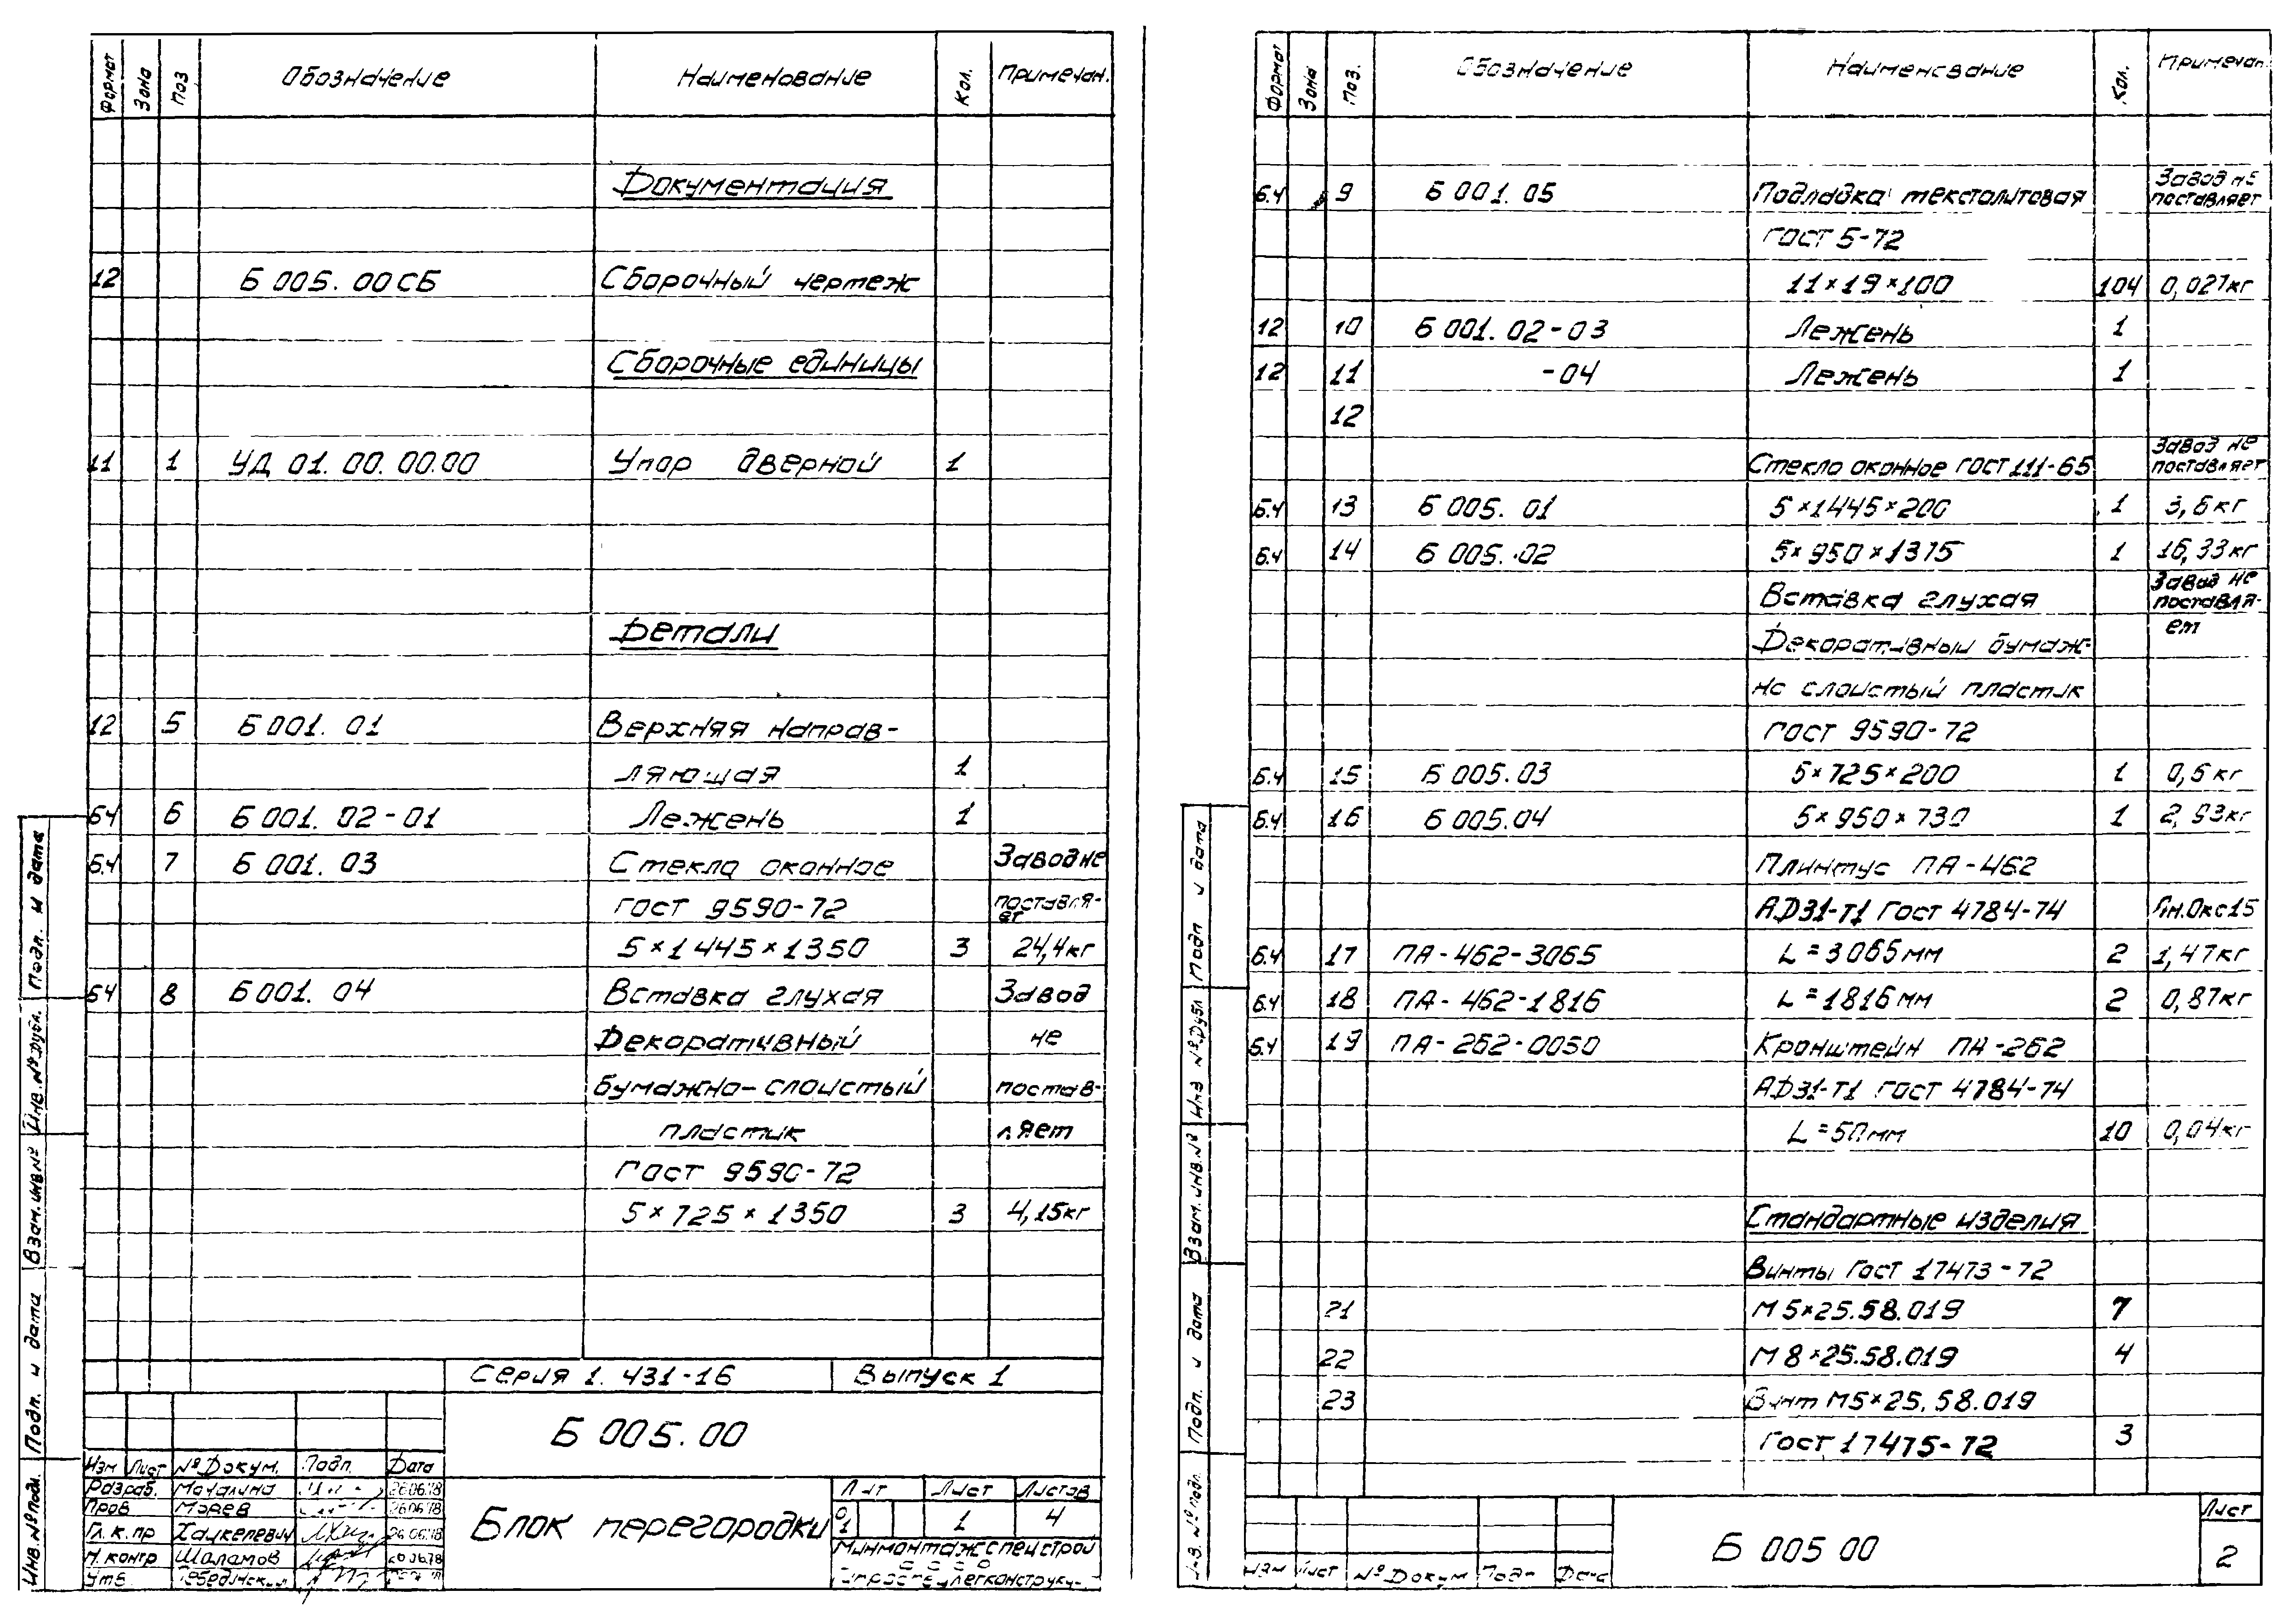 Формат Зона Поз Обозначение Наименование Кол. Примечан.
Документация
12 Б 005. 00 СБ Сборочный чертеж
Сборочные единицы
11 1 УД 01. 00. 00.00 Упор дверной 1
Детали
12 5 Б 001. 01 Верхняя направ-
ляющая 1
БЧ 6 Б 001. 02-01 Лежень 1
Б.Ч 7 Б 001. 03 Стекло оконное Завод не
ГОСТ 9590-72 поставля-
ет
5×1445×1350 3 24,4кг
БЧ 8 Б 001. 04 Вставка глухая Завод
Декоративный не
бумажно-слоистый постав-
пластик ляет
ГОСТ 9590-72
5×725×1350 3 4,15кг
Серия 1. 431-16 Выпуск 1
Б 005.00
Изм Лист № Докум. Подп. Дата
Разраб. 26.06.78
Пров Морев 26.06.78
Гл. к. пр 26.06.78
Н. контр Шаламов 26.06.78
Утв.
Блок перегородки
Лит Лист Листов
1 4
Минмонтажспецстрой
СССР
Инв. № подл. Подп. и дата Взам. инв № Инв. № Дубл. Подп. и дата
Формат Зона Поз. Обозначение Наименование Кол. Примечан.
Б.Ч 9 Б 001. 05 Подкладка текстолитовая Завод не
поставляет
ГОСТ 5-72
11×19×100 104 0,027кг
12 10 Б 001. 02-03 Лежень 1
12 11 -04 Лежень 1
12
Стекло оконное ГОСТ 111-65 Завод не
поставляет
Б.Ч 13 Б 005. 01 5×1445×200 1 3,6кг
Б.Ч 14 Б 005. 02 5×950×1375 1 16,33кг
Вставка глухая Завод не
поставля-
Декоративный бумаж- ет
но слоистый пластик
ГОСТ 9590-72
Б.Ч 15 Б 005.03 5×725×200 1 0,6кг
Б.Ч 16 Б 005.04 5×950×730 1 2,93кг
Плинтус ПА-462
АД31-Т1 ГОСТ 4784-74 Ан.Окс15
Б.Ч 17 ПА-462-3065 L=3065мм 2 1,47кг
Б.Ч 18 ПА-462-1816 L=1816мм 2 0,87кг
Б.Ч 19 ПА-262-0050 Кронштейн ПА-262
АД31-Т1 ГОСТ 4784-74
L=50мм 10 0,04кг
Стандартные изделия
Винты ГОСТ 17473-72
21 М5×25.58.019 7
22 М8×25.58.019 4
23 Винт М5×25.58.019
ГОСТ 17475-72 3
Изм Лист № Докум Подп Дата
Б 005 00
Лист
2
Инв. № подл. Подп. и дата Взам. инв. № Инв № Дубл Подп и дата